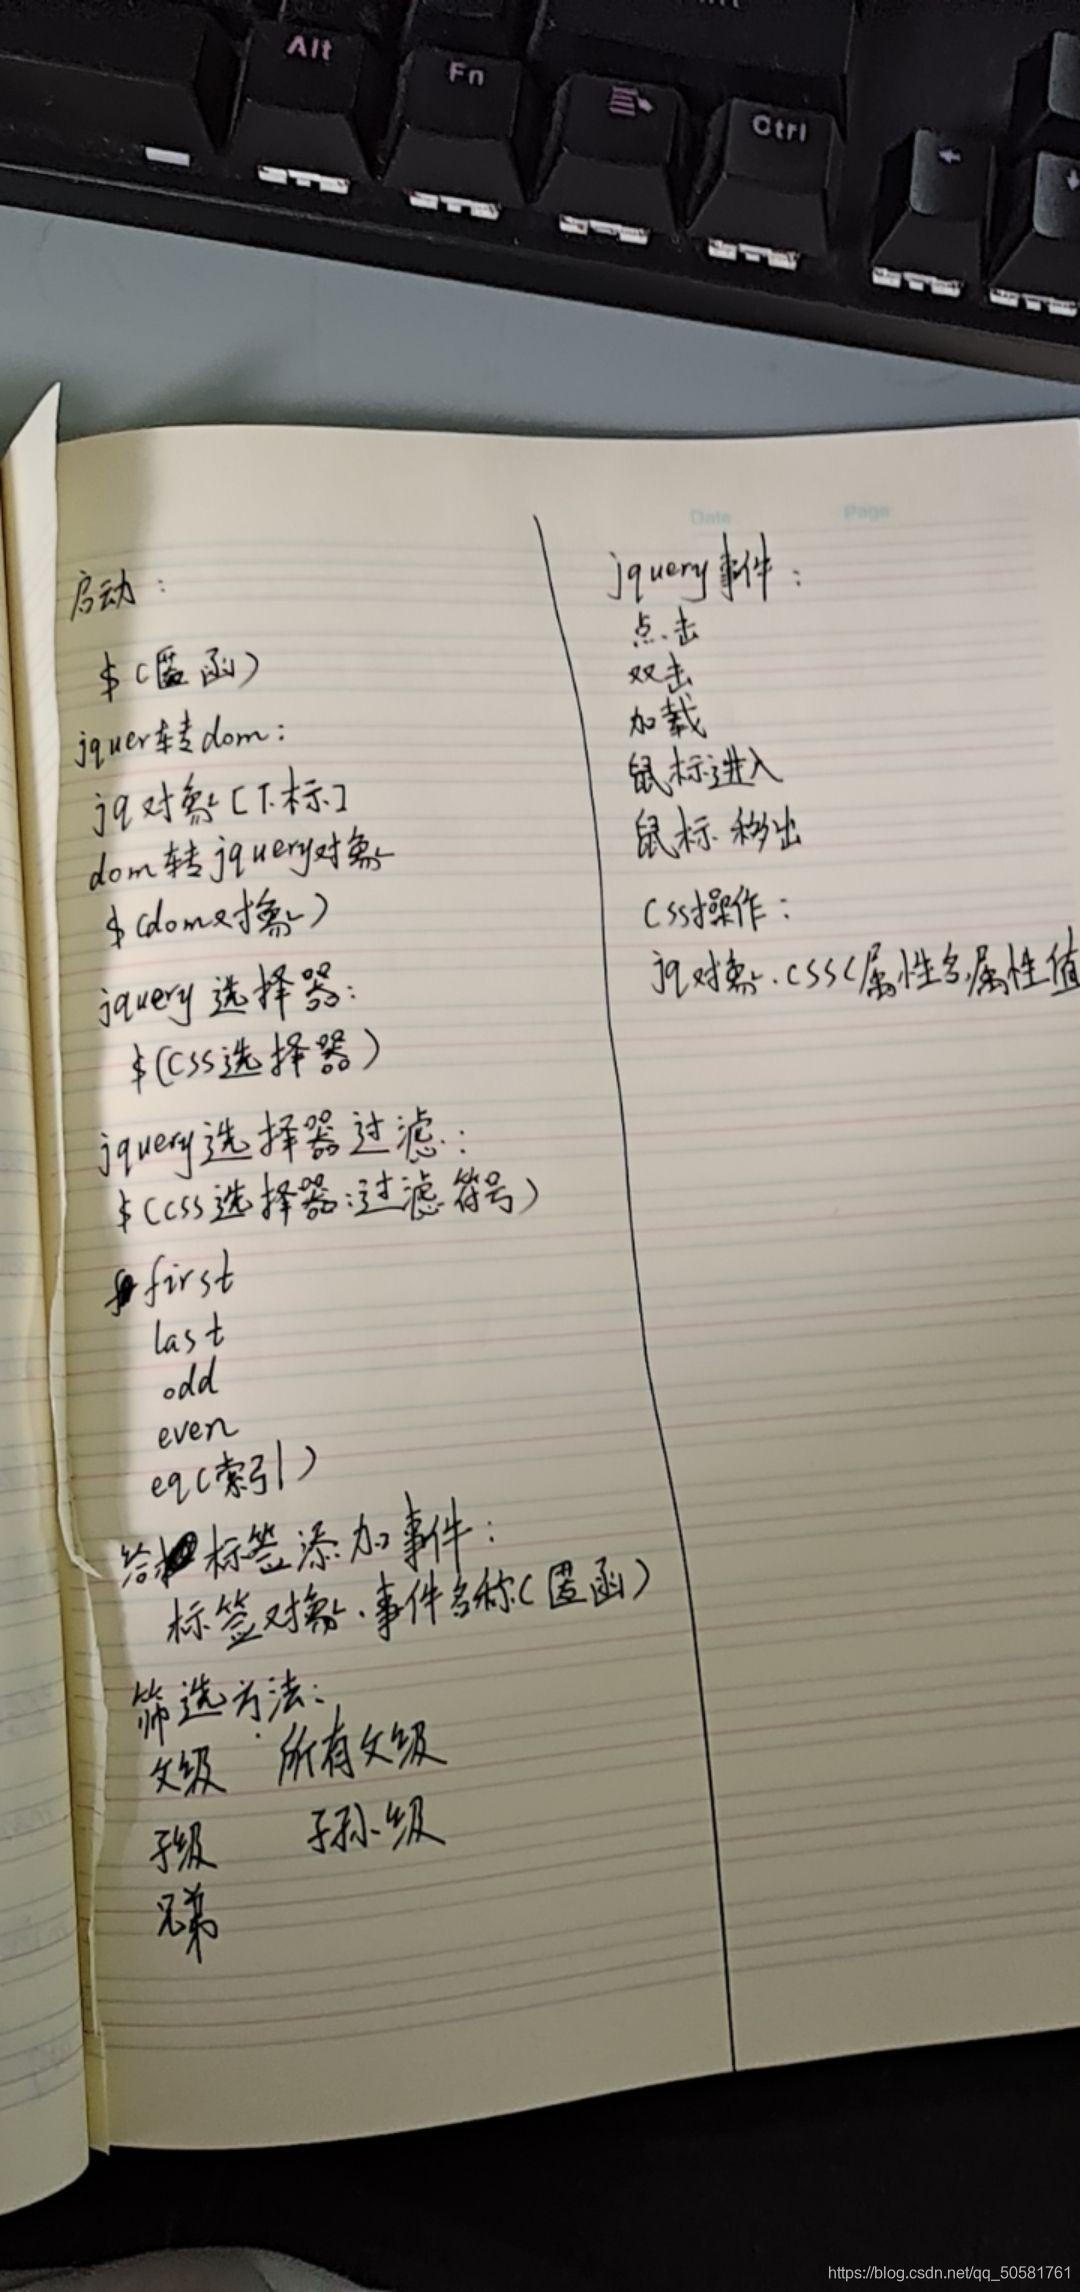 Alt
Fn
Ctrl
Date Page
启动：
$(匿函)
jquer转dom：
jq对象[下标]
dom转jquery对象
$(dom对象)
jquery选择器：
$(css选择器)
jquery选择器过滤：
$(css选择器:过滤符号)
first
last
odd
even
eq(索引)
给标签添加事件：
标签对象.事件名称(匿函)
筛选方法：
父级 所有父级
子级 子孙级
兄弟
jquery事件：
点击
双击
加载
鼠标进入
鼠标移出
css操作：
jq对象.css(属性名,属性值
https://blog.csdn.net/qq_50581761